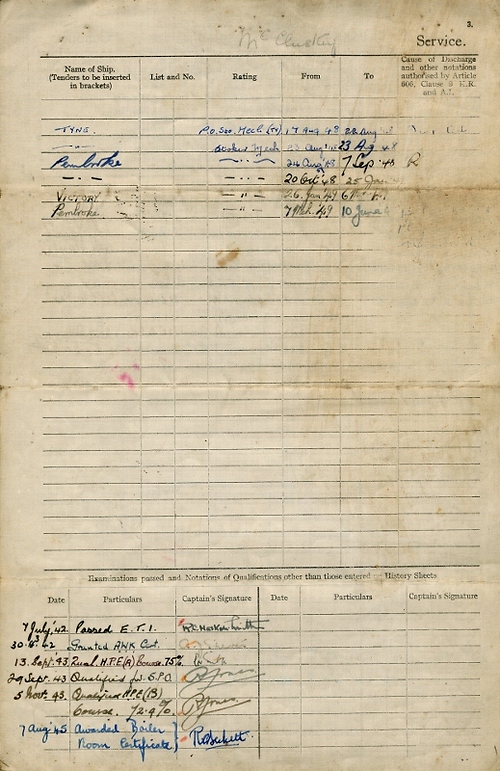 3.
McCluskey
Service.
Name of Ship. (Tenders to be inserted in brackets) List and No. Rating From To Cause of Discharge and other notations authorised by Article 606, Clause 9 K.R. and A.I.
TYNE. P.O. Sto. Mech (Ty) 17 Aug 48 22 Aug 48
-"- Stoker Mech 23 Aug 48 23 Aug 48
Pembroke -"- 24 Aug 48 7 Sep '48 R
-"- 20 Oct '48 25 Jan
VICTORY -"- 26 Jan '49 6
Pembroke -"- 7 Mch. '49 10 June
Examinations passed and Notations of Qualifications other than those entered on History Sheets
Date Particulars Captain's Signature Date Particulars Captain's Signature
7 July '42 Passed E.T.1.
30.6.42 Granted Cert.
13 Sept. 43 Qual. H.P.E(A) Course. 75%
29 Sept. 43 Qualified for S.P.O.
5 Nov. 43. Qualified H.P.E(B)
Course. 72.9%
7 Aug '45 Awarded Boiler
Room Certificate